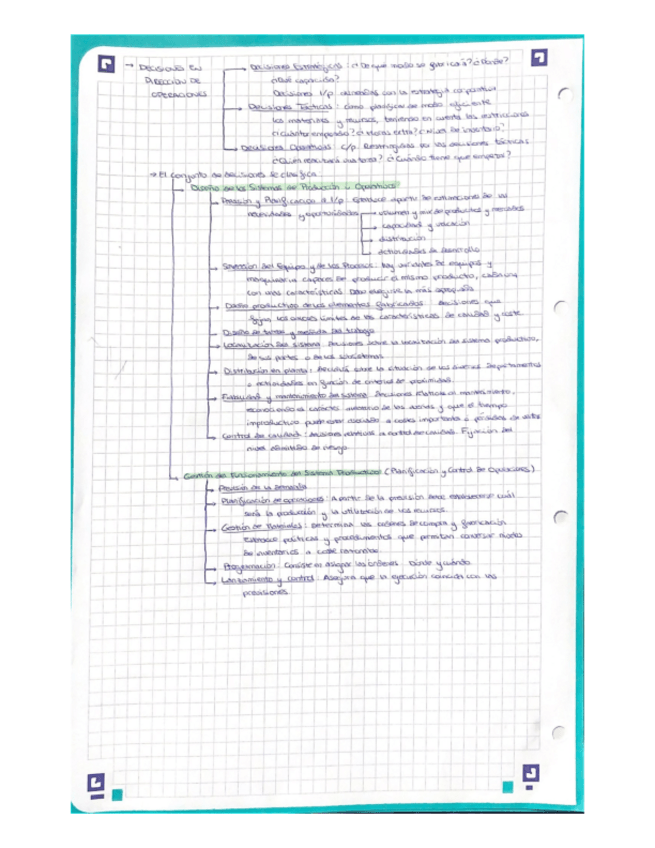 → DECISIONES EN DIRECCIÓN DE OPERACIONES
Decisiones Estratégicas: ¿De que modo se fabricará? ¿Donde?
¿Qué capacidad?
Decisiones l/p alineadas con la estrategia corporativa
Decisiones Tácticas: Cómo planificar de modo eficiente
los materiales y recursos, teniendo en cuenta las restricciones
¿Cuántos empleados? ¿Horas extra? ¿Nivel de inventario?
Decisiones Operativas: c/p. Restringidas por las decisiones tácticas
¿Quién realizará una tarea? ¿Cuándo tiene que empezar?
→ El conjunto de decisiones se clasifica
Diseño de los Sistemas de Producción u Operativos:
Previsión y Planificación a l/p: Establece a partir de estimaciones de las
necesidades y oportunidades
volumen y mix de productos y mercados
capacidad y ubicación
distribución
actividades de desarrollo
Selección del Equipo y de los Procesos: Hay variantes de equipos y
maquinaria capaces de producir el mismo producto, cada una
con unas características. Debe elegirse la más apropiada
Diseño productivo de los elementos fabricados: decisiones que
fijan los límites de las características de calidad y coste
Diseño de tareas y medida del trabajo
Localización del sistema: Decisiones sobre la localización del sistema productivo,
de sus partes o de los subsistemas
Distribución en planta: Decisión sobre la situación de los diversos departamentos
o actividades en función de criterios de proximidad.
Fiabilidad y mantenimiento del sistema: Decisiones relativas al mantenimiento,
reconociendo el carácter de los y que el tiempo
improductivo puede estar asociado a costes importantes o pérdidas de
Control de calidad: decisiones relativas a control de calidad. Fijación del
nivel de riesgo
Gestión del Funcionamiento del Sistema Productivo: (Planificación y Control de Operaciones)
Previsión de la demanda
Planificación de operaciones: A partir de la previsión debe establecerse cuál
será la producción y la utilización de los recursos
Gestión de Materiales: Determina las órdenes de compra y fabricación
Establece políticas y procedimientos que permitan conservar niveles
de inventarios a coste
Programación: Consiste en asignar las órdenes. Dónde y cuándo
Lanzamiento y control: Asegura que la ejecución coincida con las
previsiones